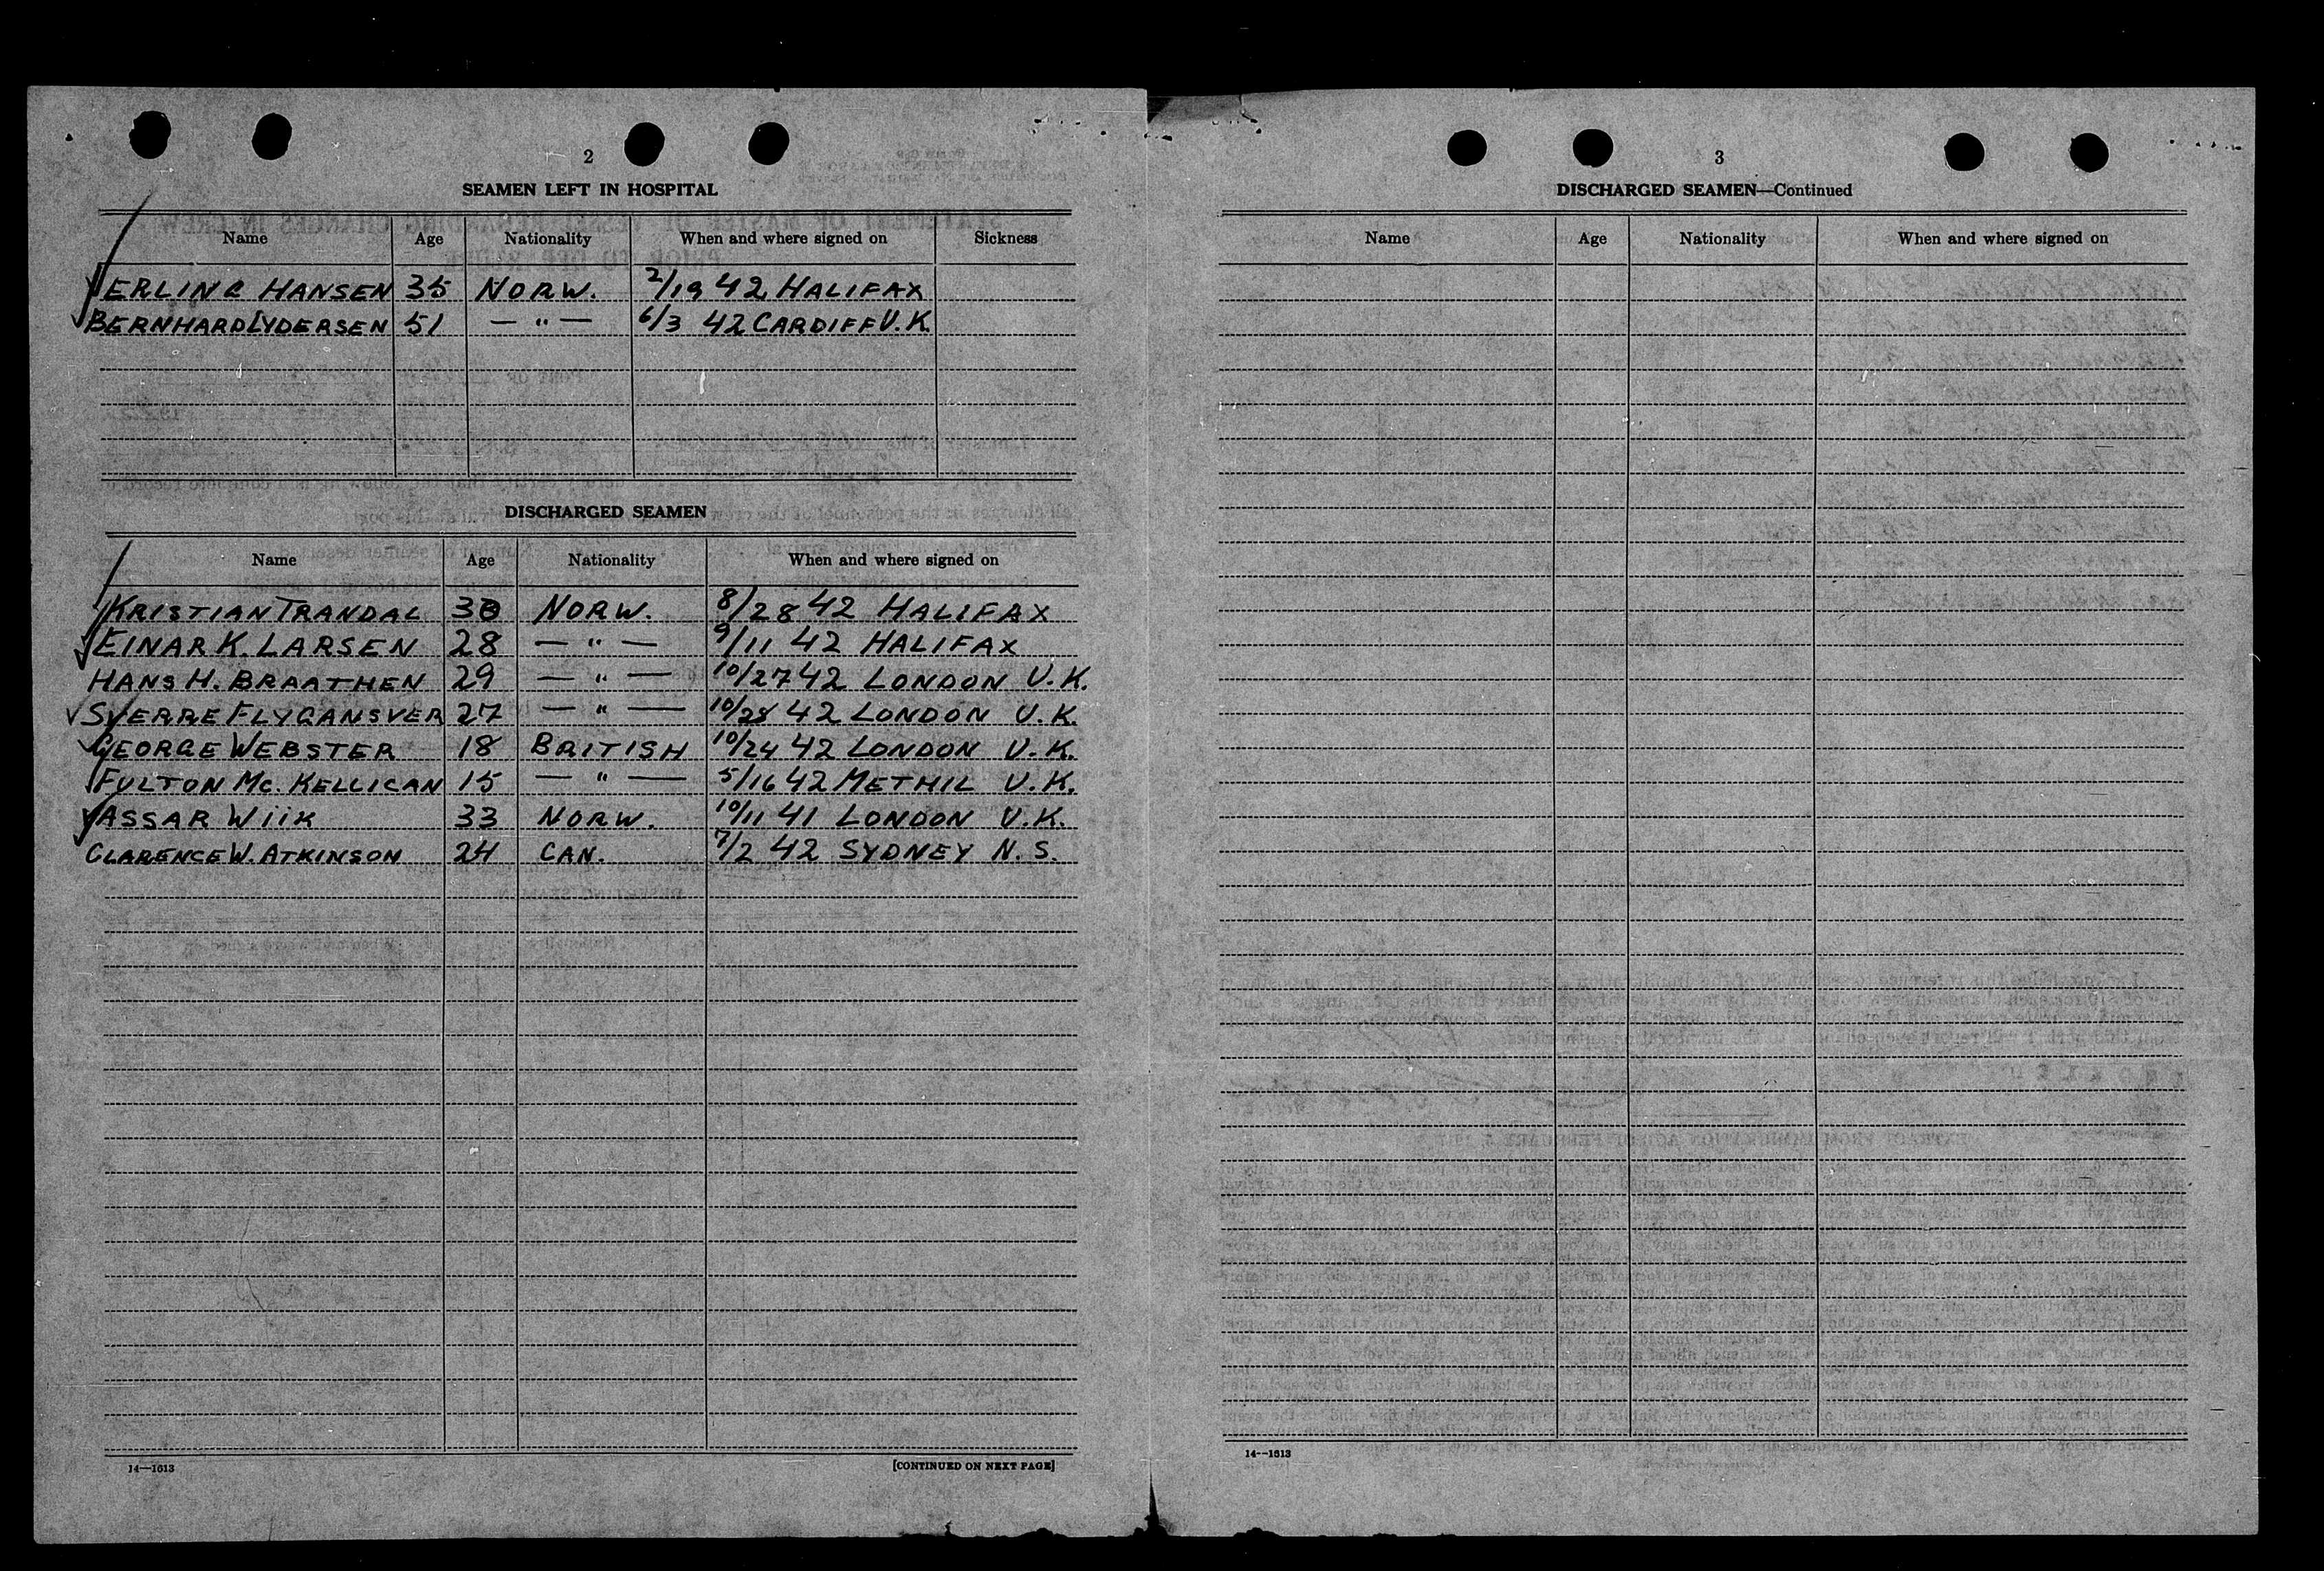 2
SEAMEN LEFT IN HOSPITAL
Name Age Nationality When and where signed on Sickness
ERLING HANSEN 35 NORW. 2/19 42 HALIFAX
BERNHARD LYDERSEN 51 — " — 6/3 42 CARDIFF U.K.
DISCHARGED SEAMEN
Name Age Nationality When and where signed on
KRISTIAN TRANDAL NORW. 8/28 42 HALIFAX
EINAR K. LARSEN 28 — " — 9/11 42 HALIFAX
HANS H. BRAATHEN 29 — " — 10/27 42 LONDON U.K.
SVERRE FLYGANSVER 27 — " — 10/28 42 LONDON U.K.
GEORGE WEBSTER 18 BRITISH 10/24 42 LONDON U.K.
FULTON MC. KELLICAN 15 — " — 5/16 42 METHIL U.K.
ASSAR WIIK 33 NORW. 10/11 41 LONDON U.K.
CLARENCE W. ATKINSON 24 CAN. 7/2 42 SYDNEY N.S.
14—1613
[CONTINUED ON NEXT PAGE]
3
DISCHARGED SEAMEN—Continued
Name Age Nationality When and where signed on
14--1613